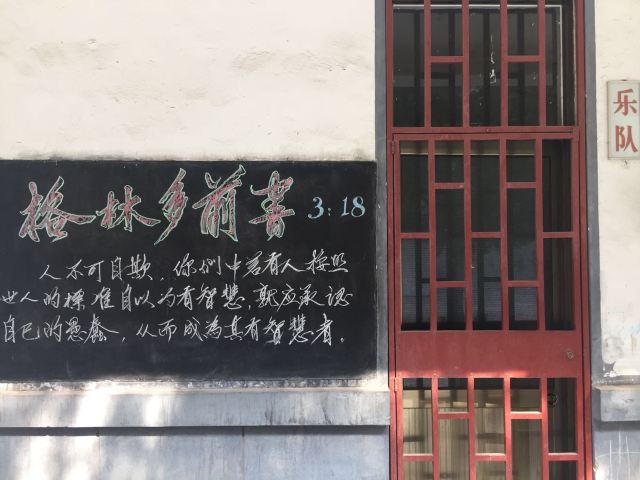 格林多前書 3:18
人不可自欺，你们中若有人按照
世人的標准自以为有智慧，就应承认
自已的愚蠢，从而成為真有智慧者。
乐队